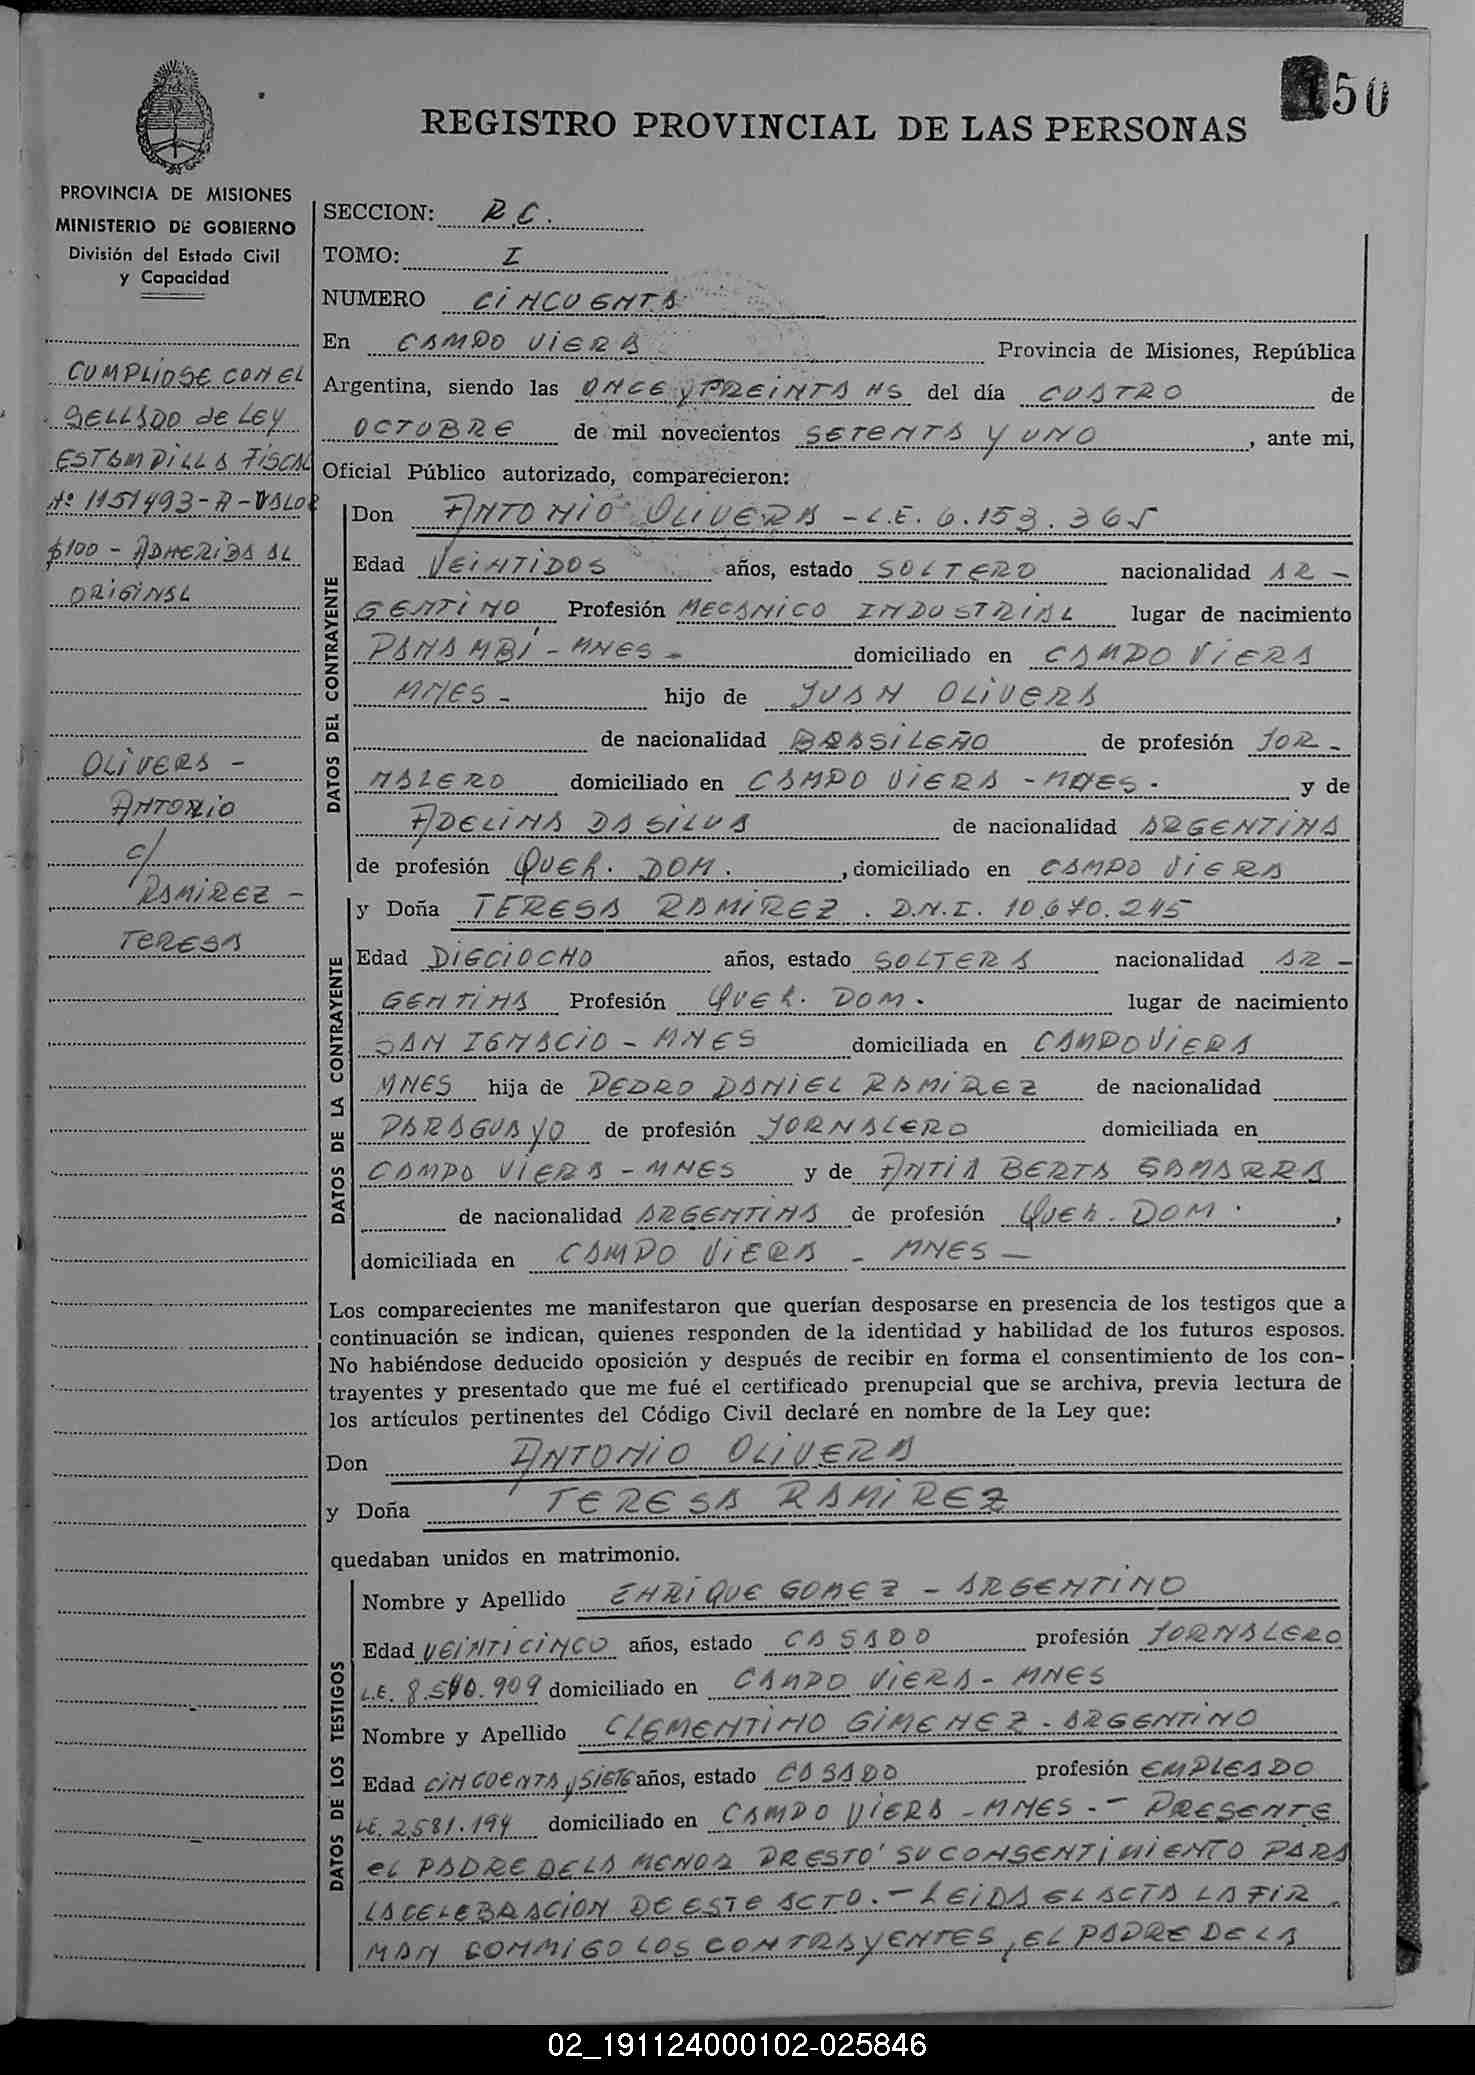 150
REGISTRO PROVINCIAL DE LAS PERSONAS
PROVINCIA DE MISIONES
MINISTERIO DE GOBIERNO
División del Estado Civil
y Capacidad
CUMPLIOSE CON EL
SELLADO de LEY
ESTAMPILLA FISCAL
Nº 1151493-A-VALOR
$100 - ADHERIDA AL
ORIGINAL
OLIVERA -
ANTONIO
c/
RAMIREZ -
TERESA
SECCION: R.C.
TOMO: I
NUMERO CINCUENTA
En CAMPO VIERA Provincia de Misiones, República
Argentina, siendo las ONCE y TREINTA HS del día CUATRO de
OCTUBRE de mil novecientos SETENTA Y UNO, ante mi,
Oficial Público autorizado, comparecieron:
DATOS DEL CONTRAYENTE
Don ANTONIO OLIVERA - L.E. 6.153.365
Edad VEINTIDOS años, estado SOLTERO nacionalidad AR-
GENTINO Profesión MECANICO INDUSTRIAL lugar de nacimiento
PANAMBÍ - MNES - domiciliado en CAMPO VIERA
MNES - hijo de JUAN OLIVERA
de nacionalidad BRASILEÑO de profesión JOR-
NALERO domiciliado en CAMPO VIERA - MNES. y de
ADELINA DA SILVA de nacionalidad ARGENTINA
de profesión QUEH. DOM. , domiciliado en CAMPO VIERA
DATOS DE LA CONTRAYENTE
y Doña TERESA RAMIREZ . D.N.I. 10.670.245
Edad DIECIOCHO años, estado SOLTERA nacionalidad AR-
GENTINA Profesión QUEH. DOM. lugar de nacimiento
SAN IGNACIO - MNES domiciliada en CAMPO VIERA
MNES hija de PEDRO DANIEL RAMIREZ de nacionalidad
PARAGUAYO de profesión JORNALERO domiciliada en
CAMPO VIERA - MNES y de ANTIA BERTA GAMARRA
de nacionalidad ARGENTINA de profesión QUEH. DOM. ,
domiciliada en CAMPO VIERA - MNES -
Los comparecientes me manifestaron que querían desposarse en presencia de los testigos que a
continuación se indican, quienes responden de la identidad y habilidad de los futuros esposos.
No habiéndose deducido oposición y después de recibir en forma el consentimiento de los con-
trayentes y presentado que me fué el certificado prenupcial que se archiva, previa lectura de
los artículos pertinentes del Código Civil declaré en nombre de la Ley que:
Don ANTONIO OLIVERA
y Doña TERESA RAMIREZ
quedaban unidos en matrimonio.
DATOS DE LOS TESTIGOS
Nombre y Apellido ENRIQUE GOMEZ - ARGENTINO
Edad VEINTICINCO años, estado CASADO profesión JORNALERO
L.E. 8.540.909 domiciliado en CAMPO VIERA - MNES
Nombre y Apellido CLEMENTINO GIMENEZ - ARGENTINO
Edad CINCUENTA y SIETE años, estado CASADO profesión EMPLEADO
L.E. 2.581.194 domiciliado en CAMPO VIERA - MNES. - PRESENTE
EL PADRE DE LA MENOR PRESTÓ SU CONSENTIMIENTO PARA
LA CELEBRACION DE ESTE ACTO. - LEIDA EL ACTA LA FIR-
MAN CONMIGO LOS CONTRAYENTES, EL PADRE DE LA
02_191124000102-025846